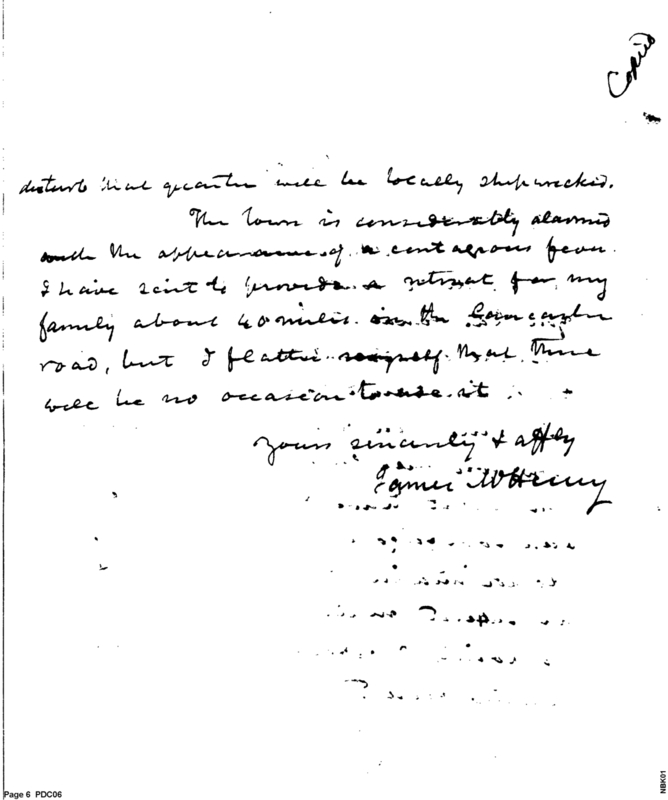 Copied
disturb that quarter will be locally shipwrecked.
The town is considerably alarmed
with the appearance of a contagious fever.
I have sent to provide a retreat for my
family about 40 miles on the Lancaster
road, but I flatter myself that there
will be no occasion to use it
Yours sincerely & affly
James McHenry
Page 6 PDC06
NBK01